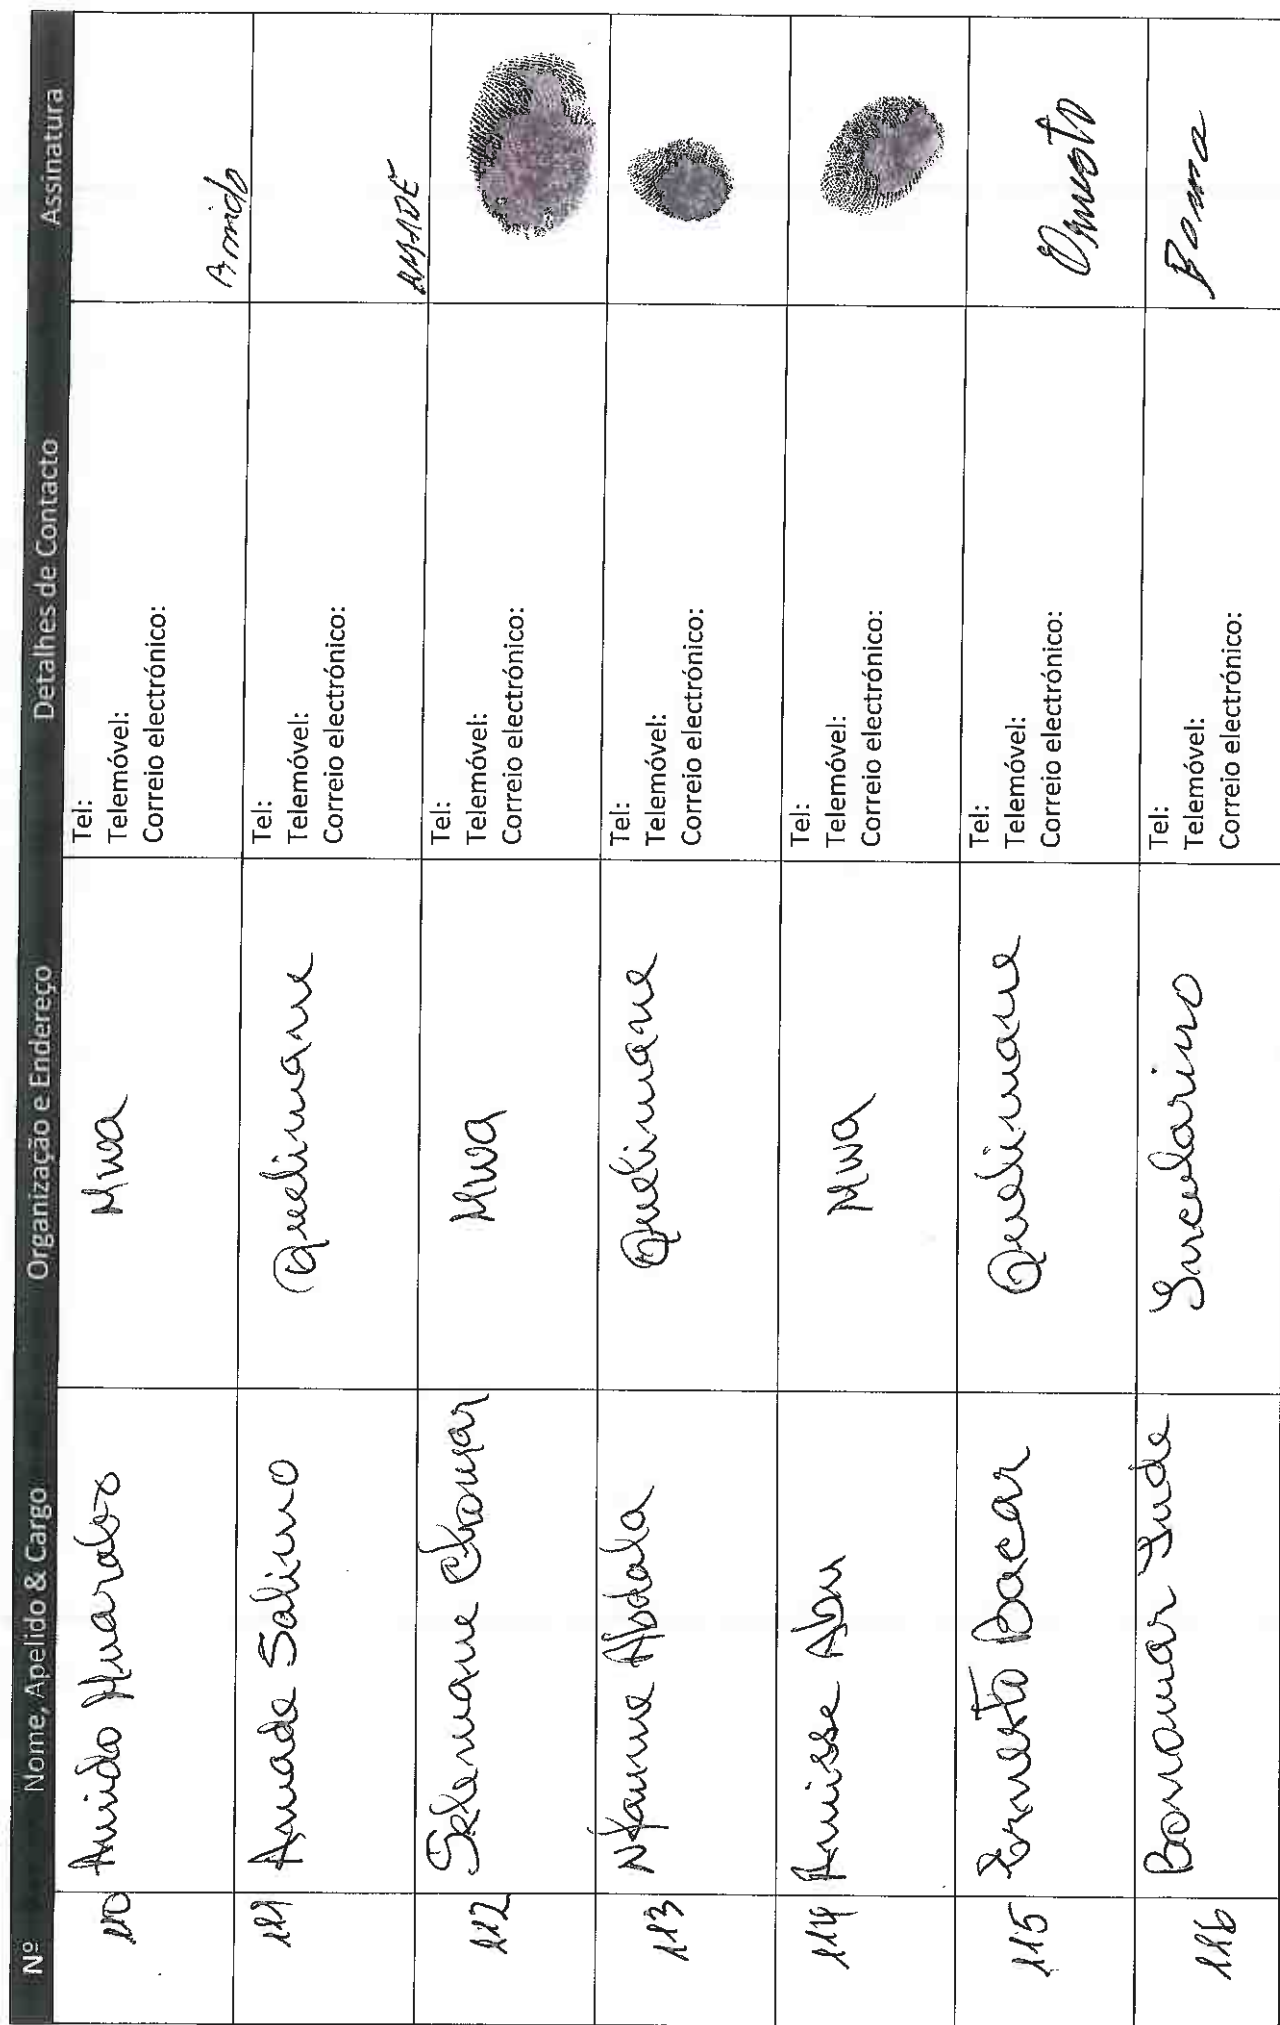 Nº Nome, Apelido & Cargo Organização e Endereço Detalhes de Contacto Assinatura
110 Amido Muarabo Mwa Tel:
Telemóvel:
Correio electrónico:
Amido
111 Amade Salimo Quelimane Tel:
Telemóvel:
Correio electrónico:
AMADE
112 Selemane Chomar Mwa Tel:
Telemóvel:
Correio electrónico:
113 Abdala Quelimane Tel:
Telemóvel:
Correio electrónico:
114 Amisse Abu Mwa Tel:
Telemóvel:
Correio electrónico:
115 Ernesto Bacar Quelimane Tel:
Telemóvel:
Correio electrónico:
Ernesto
116 Bomar Tel:
Telemóvel:
Correio electrónico: